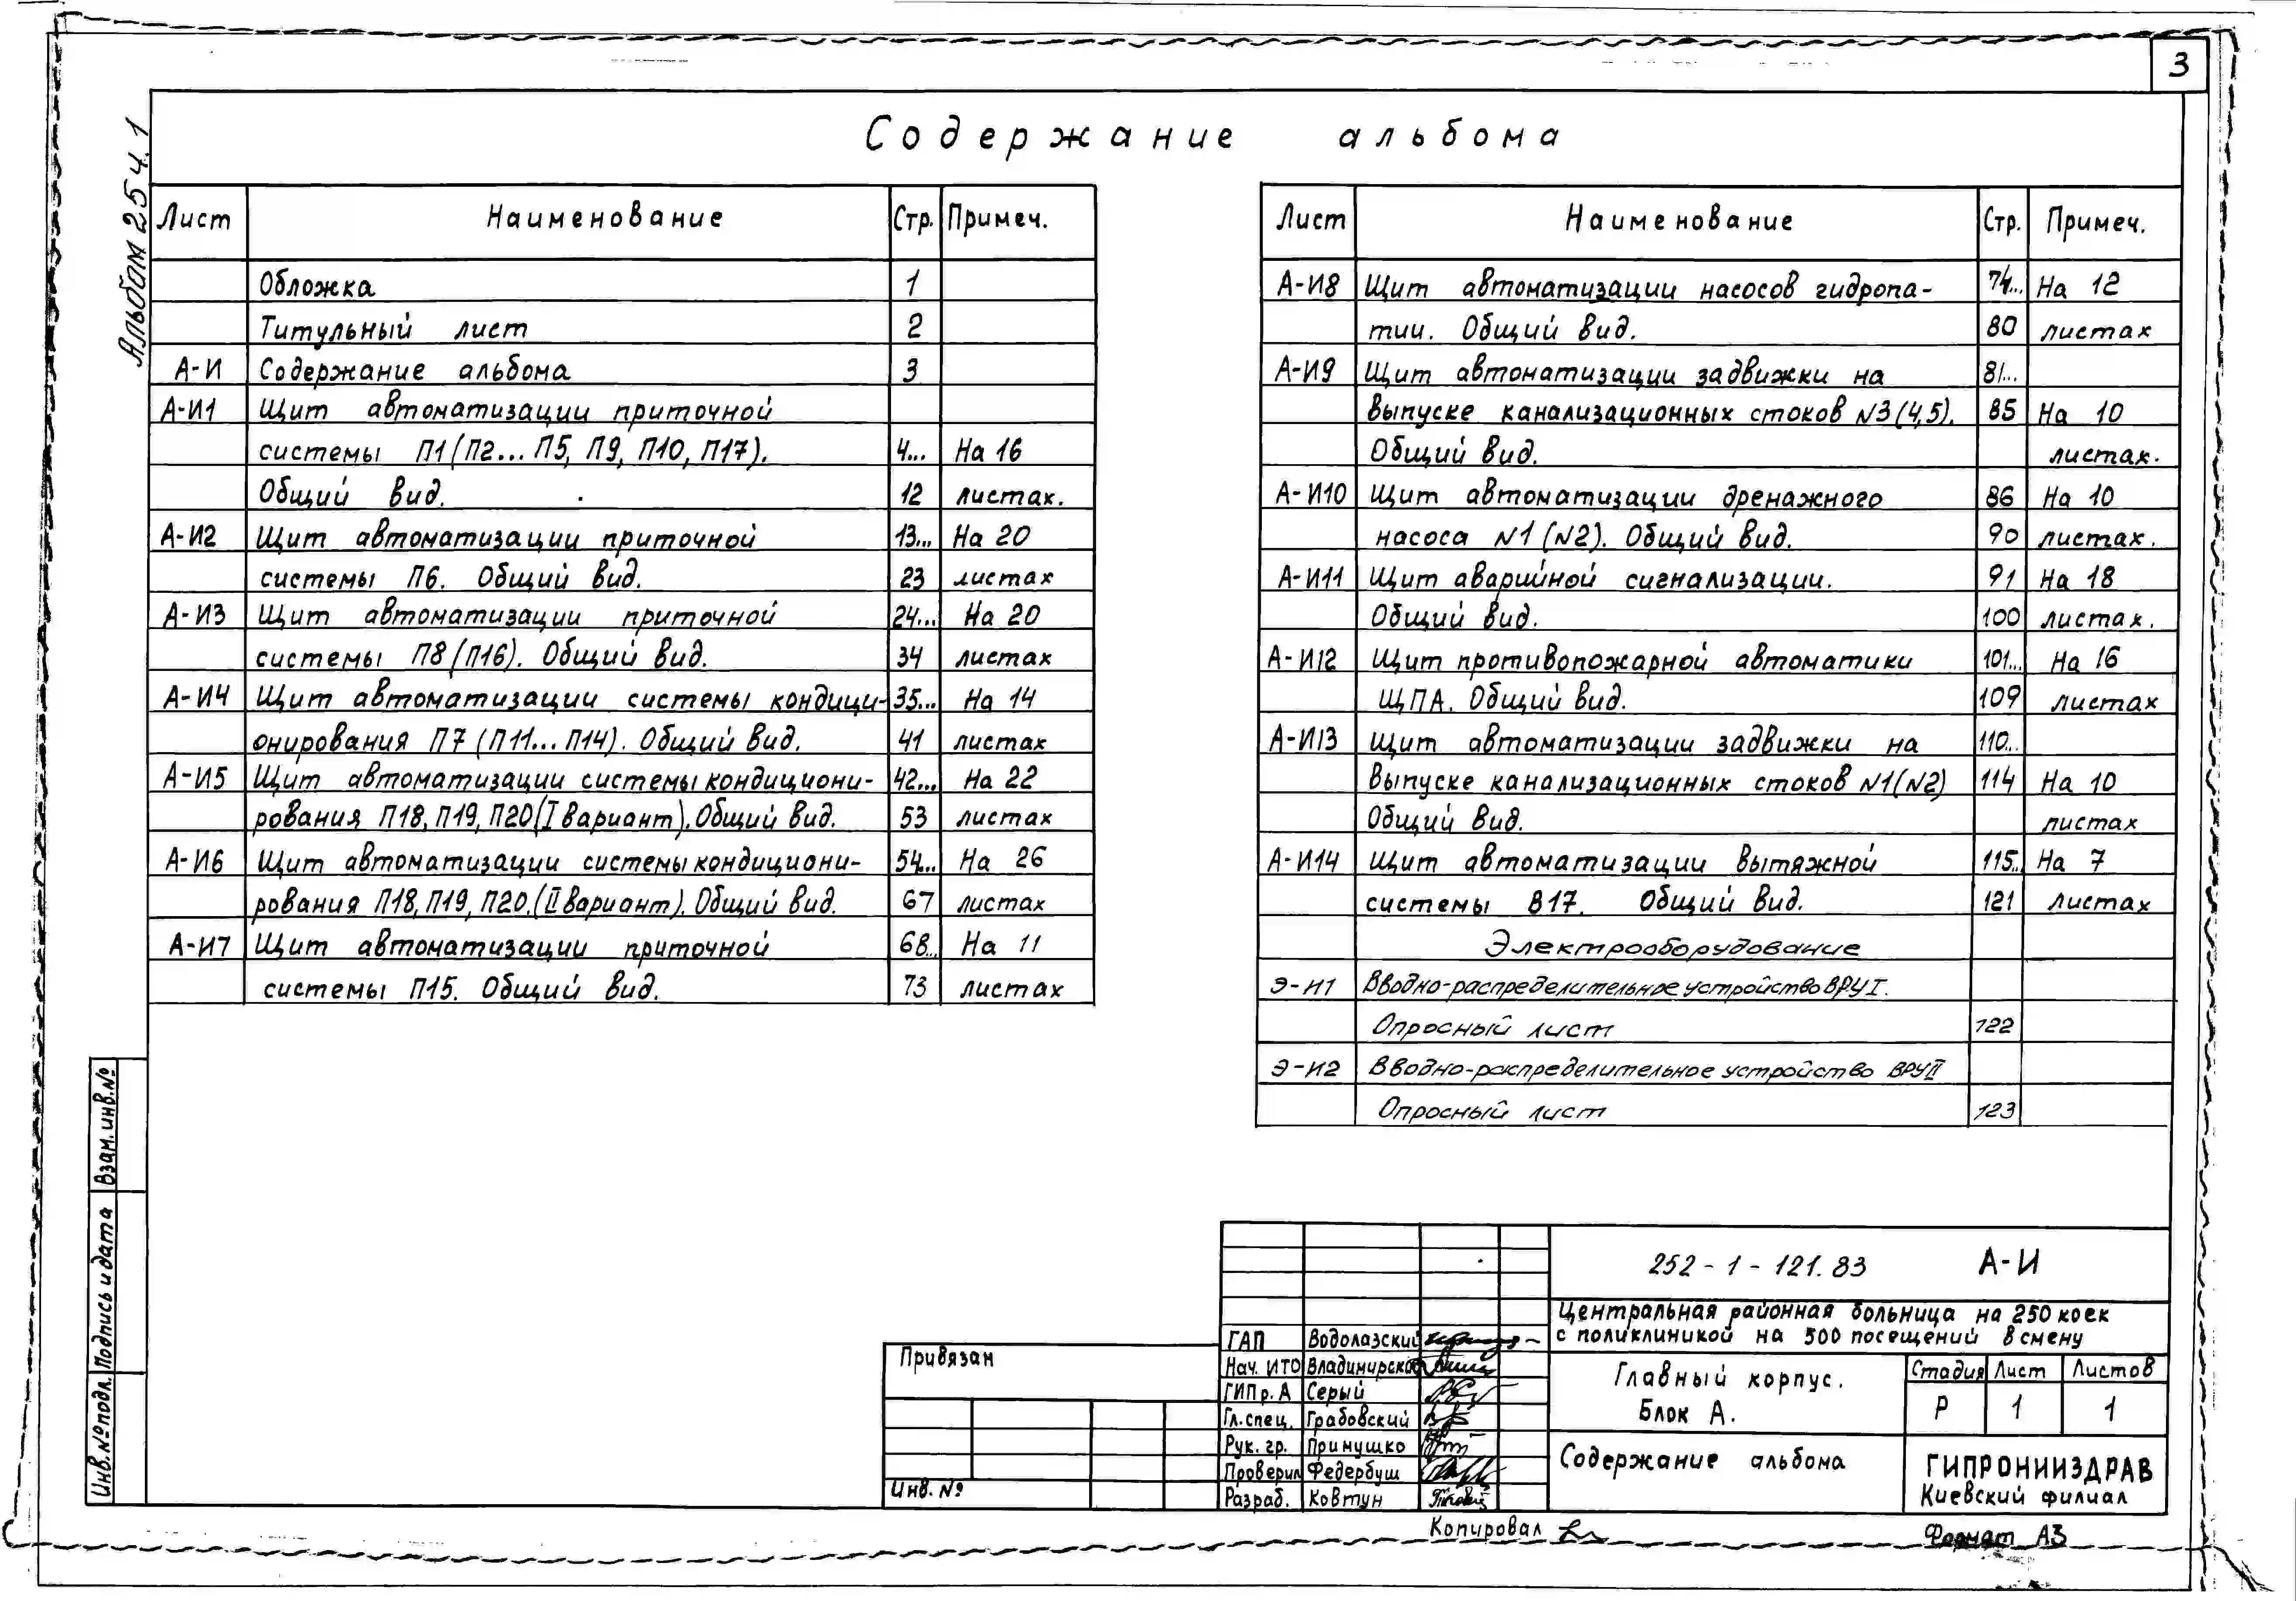 3
Содержание альбома
Альбом 25 ч. 1
Лист Наименование Стр. Примеч.
Обложка 1
Титульный лист 2
А-И Содержание альбома 3
А-И1 Щит автоматизации приточной
системы П1 (П2... П5, П9, П10, П17). 4... На 16
Общий вид. 12 листах.
А-И2 Щит автоматизации приточной 13... На 20
системы П6. Общий вид. 23 листах
А-И3 Щит автоматизации приточной 24... На 20
системы П8 (П16). Общий вид. 34 листах
А-И4 Щит автоматизации системы кондици- 35... На 14
онирования П7 (П11... П14). Общий вид. 41 листах
А-И5 Щит автоматизации системы кондициони- 42... На 22
рования П18, П19, П20 (I вариант). Общий вид. 53 листах
А-И6 Щит автоматизации системы кондициони- 54... На 26
рования П18, П19, П20. (II вариант). Общий вид. 67 листах
А-И7 Щит автоматизации приточной 68... На 11
системы П15. Общий вид. 73 листах
Лист Наименование Стр. Примеч.
А-И8 Щит автоматизации насосов гидропа- 74... На 12
тии. Общий вид. 80 листах
А-И9 Щит автоматизации задвижки на 81...
выпуске канализационных стоков №3 (4,5). 85 На 10
Общий вид. листах.
А-И10 Щит автоматизации дренажного 86 На 10
насоса №1 (№2). Общий вид. 90 листах.
А-И11 Щит аварийной сигнализации. 91 На 18
Общий вид. 100 листах.
А-И12 Щит противопожарной автоматики 101... На 16
ЩПА. Общий вид. 109 листах
А-И13 Щит автоматизации задвижки на 110...
выпуске канализационных стоков №1 (№2) 114 На 10
Общий вид. листах
А-И14 Щит автоматизации вытяжной 115.. На 7
системы В17. Общий вид. 121 листах
Электрооборудование
Э-И1 Вводно-распределительное устройство ВРУ I.
Опросный лист 122
Э-И2 Вводно-распределительное устройство ВРУ II
Опросный лист 123
Взам. инв. №
Подпись и дата
Инв. № подл.
Привязан
Инв. №
252-1-121.83 А-И
Центральная районная больница на 250 коек
с поликлиникой на 500 посещений в смену
ГАП Водолазский
Нач. ИТО Владимирский
ГИПр. А Серый
Гл. спец. Грабовский
Рук. гр. Примушко
Проверил Федербуш
Разраб. Ковтун
Главный корпус.
Блок А.
Стадия Лист Листов
Р 1 1
Содержание альбома
ГИПРОНИИЗДРАВ
Киевский филиал
Копировал
Формат А3